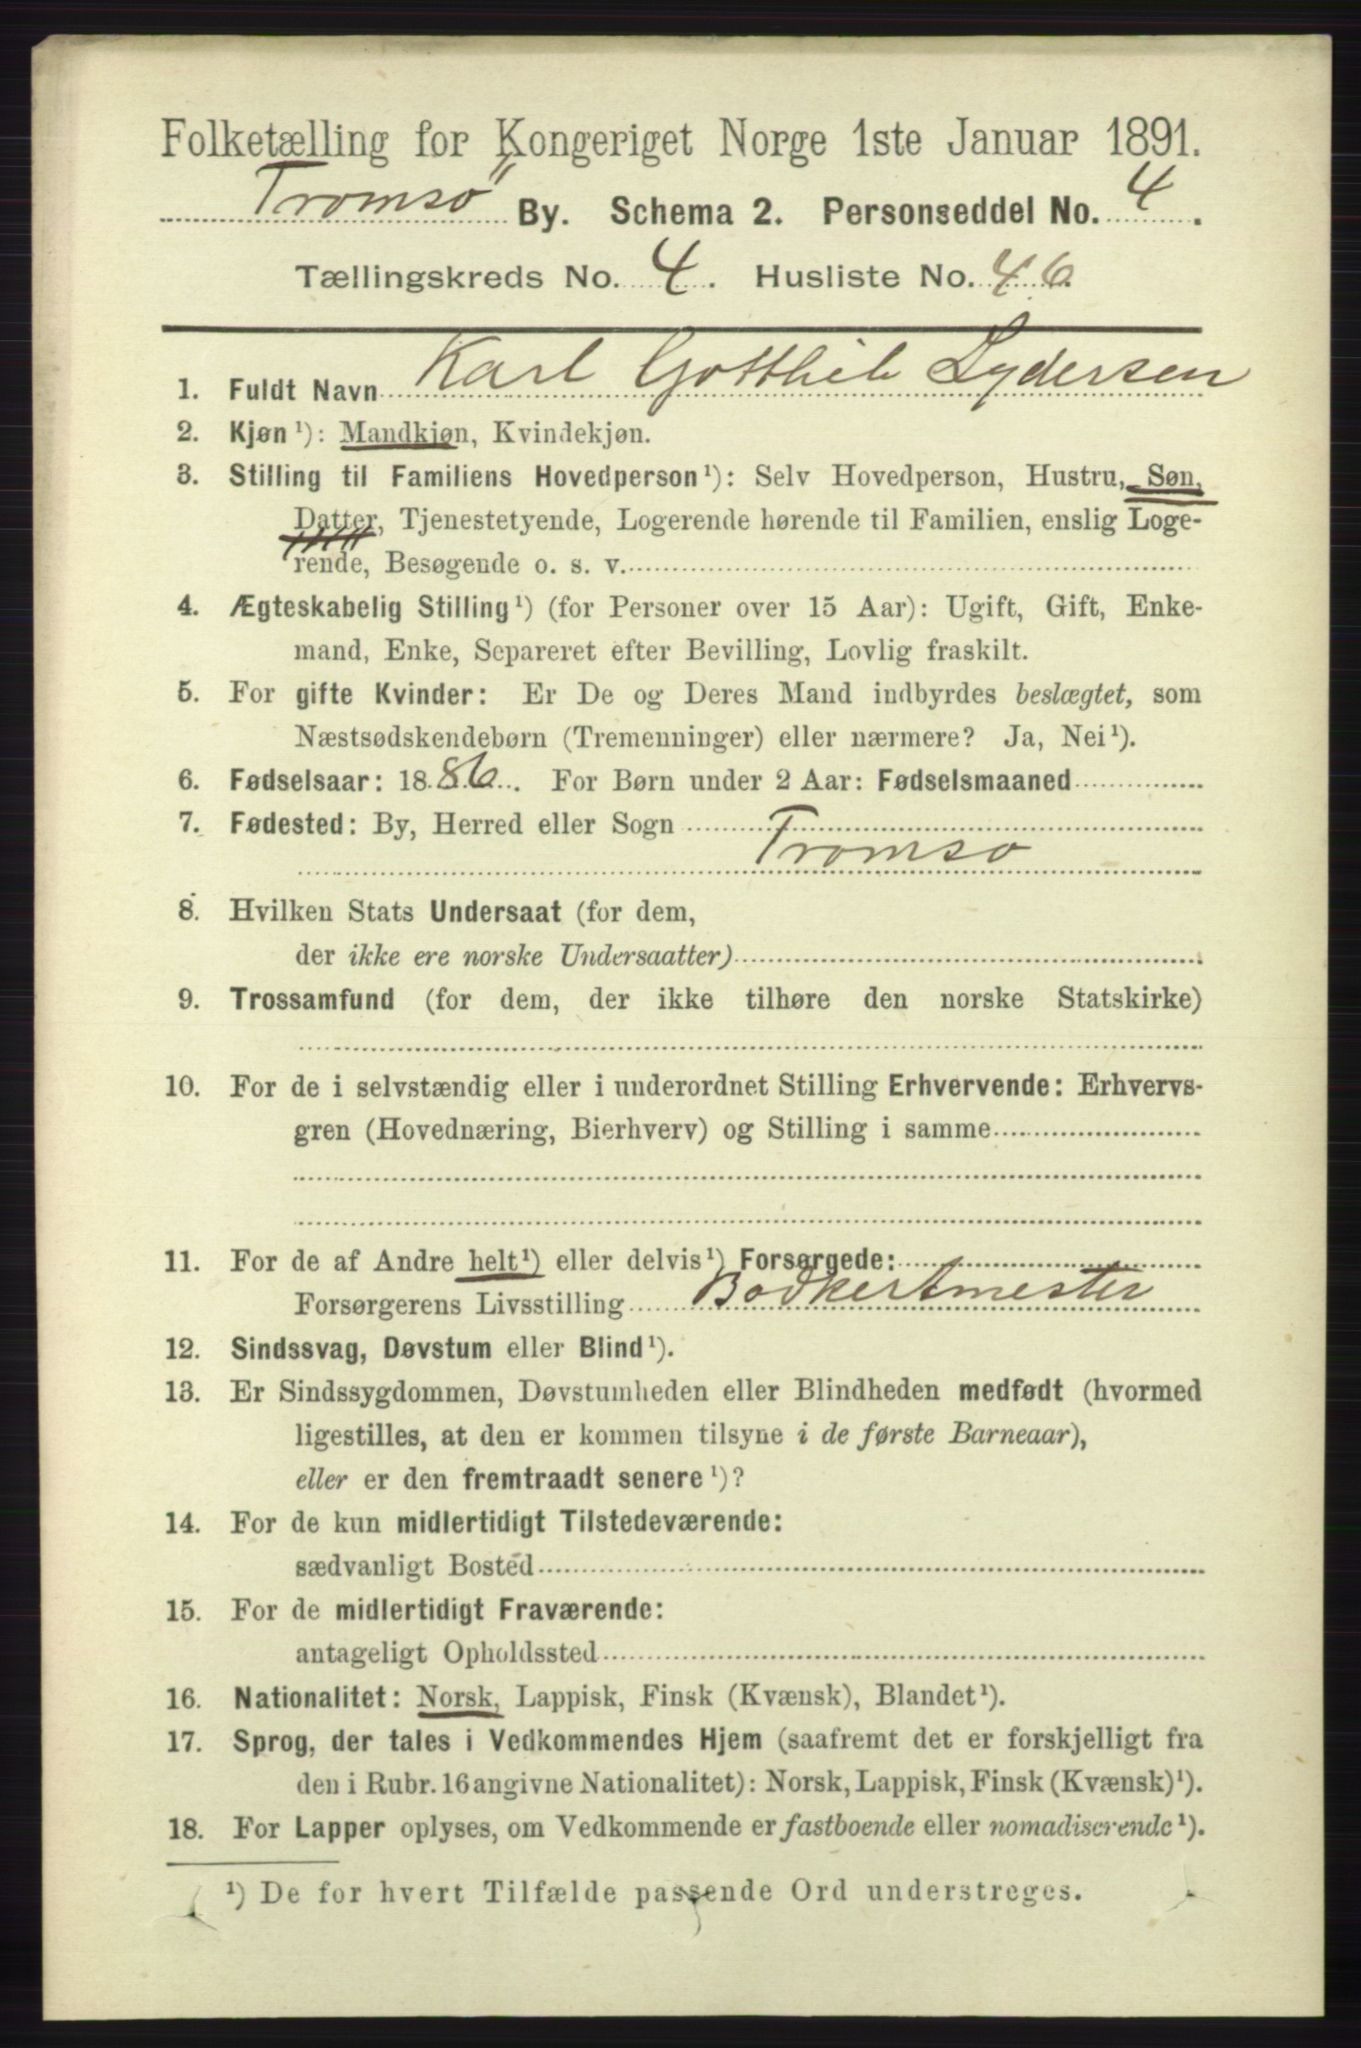 Folketælling for Kongeriget Norge 1ste Januar 1891.
Tromsø By. Schema 2. Personseddel No. 4.
Tællingskreds No. 4. Husliste No. 46
1. Fuldt Navn Karl Gotthieb Lydersen
2. Kjøn¹): Mandkjøn, Kvindekjøn.
3. Stilling til Familiens Hovedperson¹): Selv Hovedperson, Hustru, Søn,
Datter, Tjenestetyende, Logerende hørende til Familien, enslig Loge-
rende, Besøgende o. s. v.
4. Ægteskabelig Stilling¹) (for Personer over 15 Aar): Ugift, Gift, Enke-
mand, Enke, Separeret efter Bevilling, Lovlig fraskilt.
5. For gifte Kvinder: Er De og Deres Mand indbyrdes beslægtet, som
Næstsødskendebørn (Tremenninger) eller nærmere? Ja, Nei¹).
6. Fødselsaar: 1886. For Børn under 2 Aar: Fødselsmaaned
7. Fødested: By, Herred eller Sogn
Tromsø
8. Hvilken Stats Undersaat (for dem,
der ikke ere norske Undersaatter)
9. Trossamfund (for dem, der ikke tilhøre den norske Statskirke)
10. For de i selvstændig eller i underordnet Stilling Erhvervende: Erhvervs-
gren (Hovednæring, Bierhverv) og Stilling i samme
11. For de af Andre helt¹) eller delvis¹) Forsørgede:
Forsørgerens Livsstilling Bødkermester
12. Sindssvag, Døvstum eller Blind¹).
13. Er Sindssygdommen, Døvstumheden eller Blindheden medfødt (hvormed
ligestilles, at den er kommen tilsyne i de første Barneaar),
eller er den fremtraadt senere¹)?
14. For de kun midlertidigt Tilstedeværende:
sædvanligt Bosted
15. For de midlertidigt Fraværende:
antageligt Opholdssted
16. Nationalitet: Norsk, Lappisk, Finsk (Kvænsk), Blandet¹).
17. Sprog, der tales i Vedkommendes Hjem (saafremt det er forskjelligt fra
den i Rubr. 16 angivne Nationalitet): Norsk, Lappisk, Finsk (Kvænsk)¹).
18. For Lapper oplyses, om Vedkommende er fastboende eller nomadiserende¹).
¹) De for hvert Tilfælde passende Ord understreges.